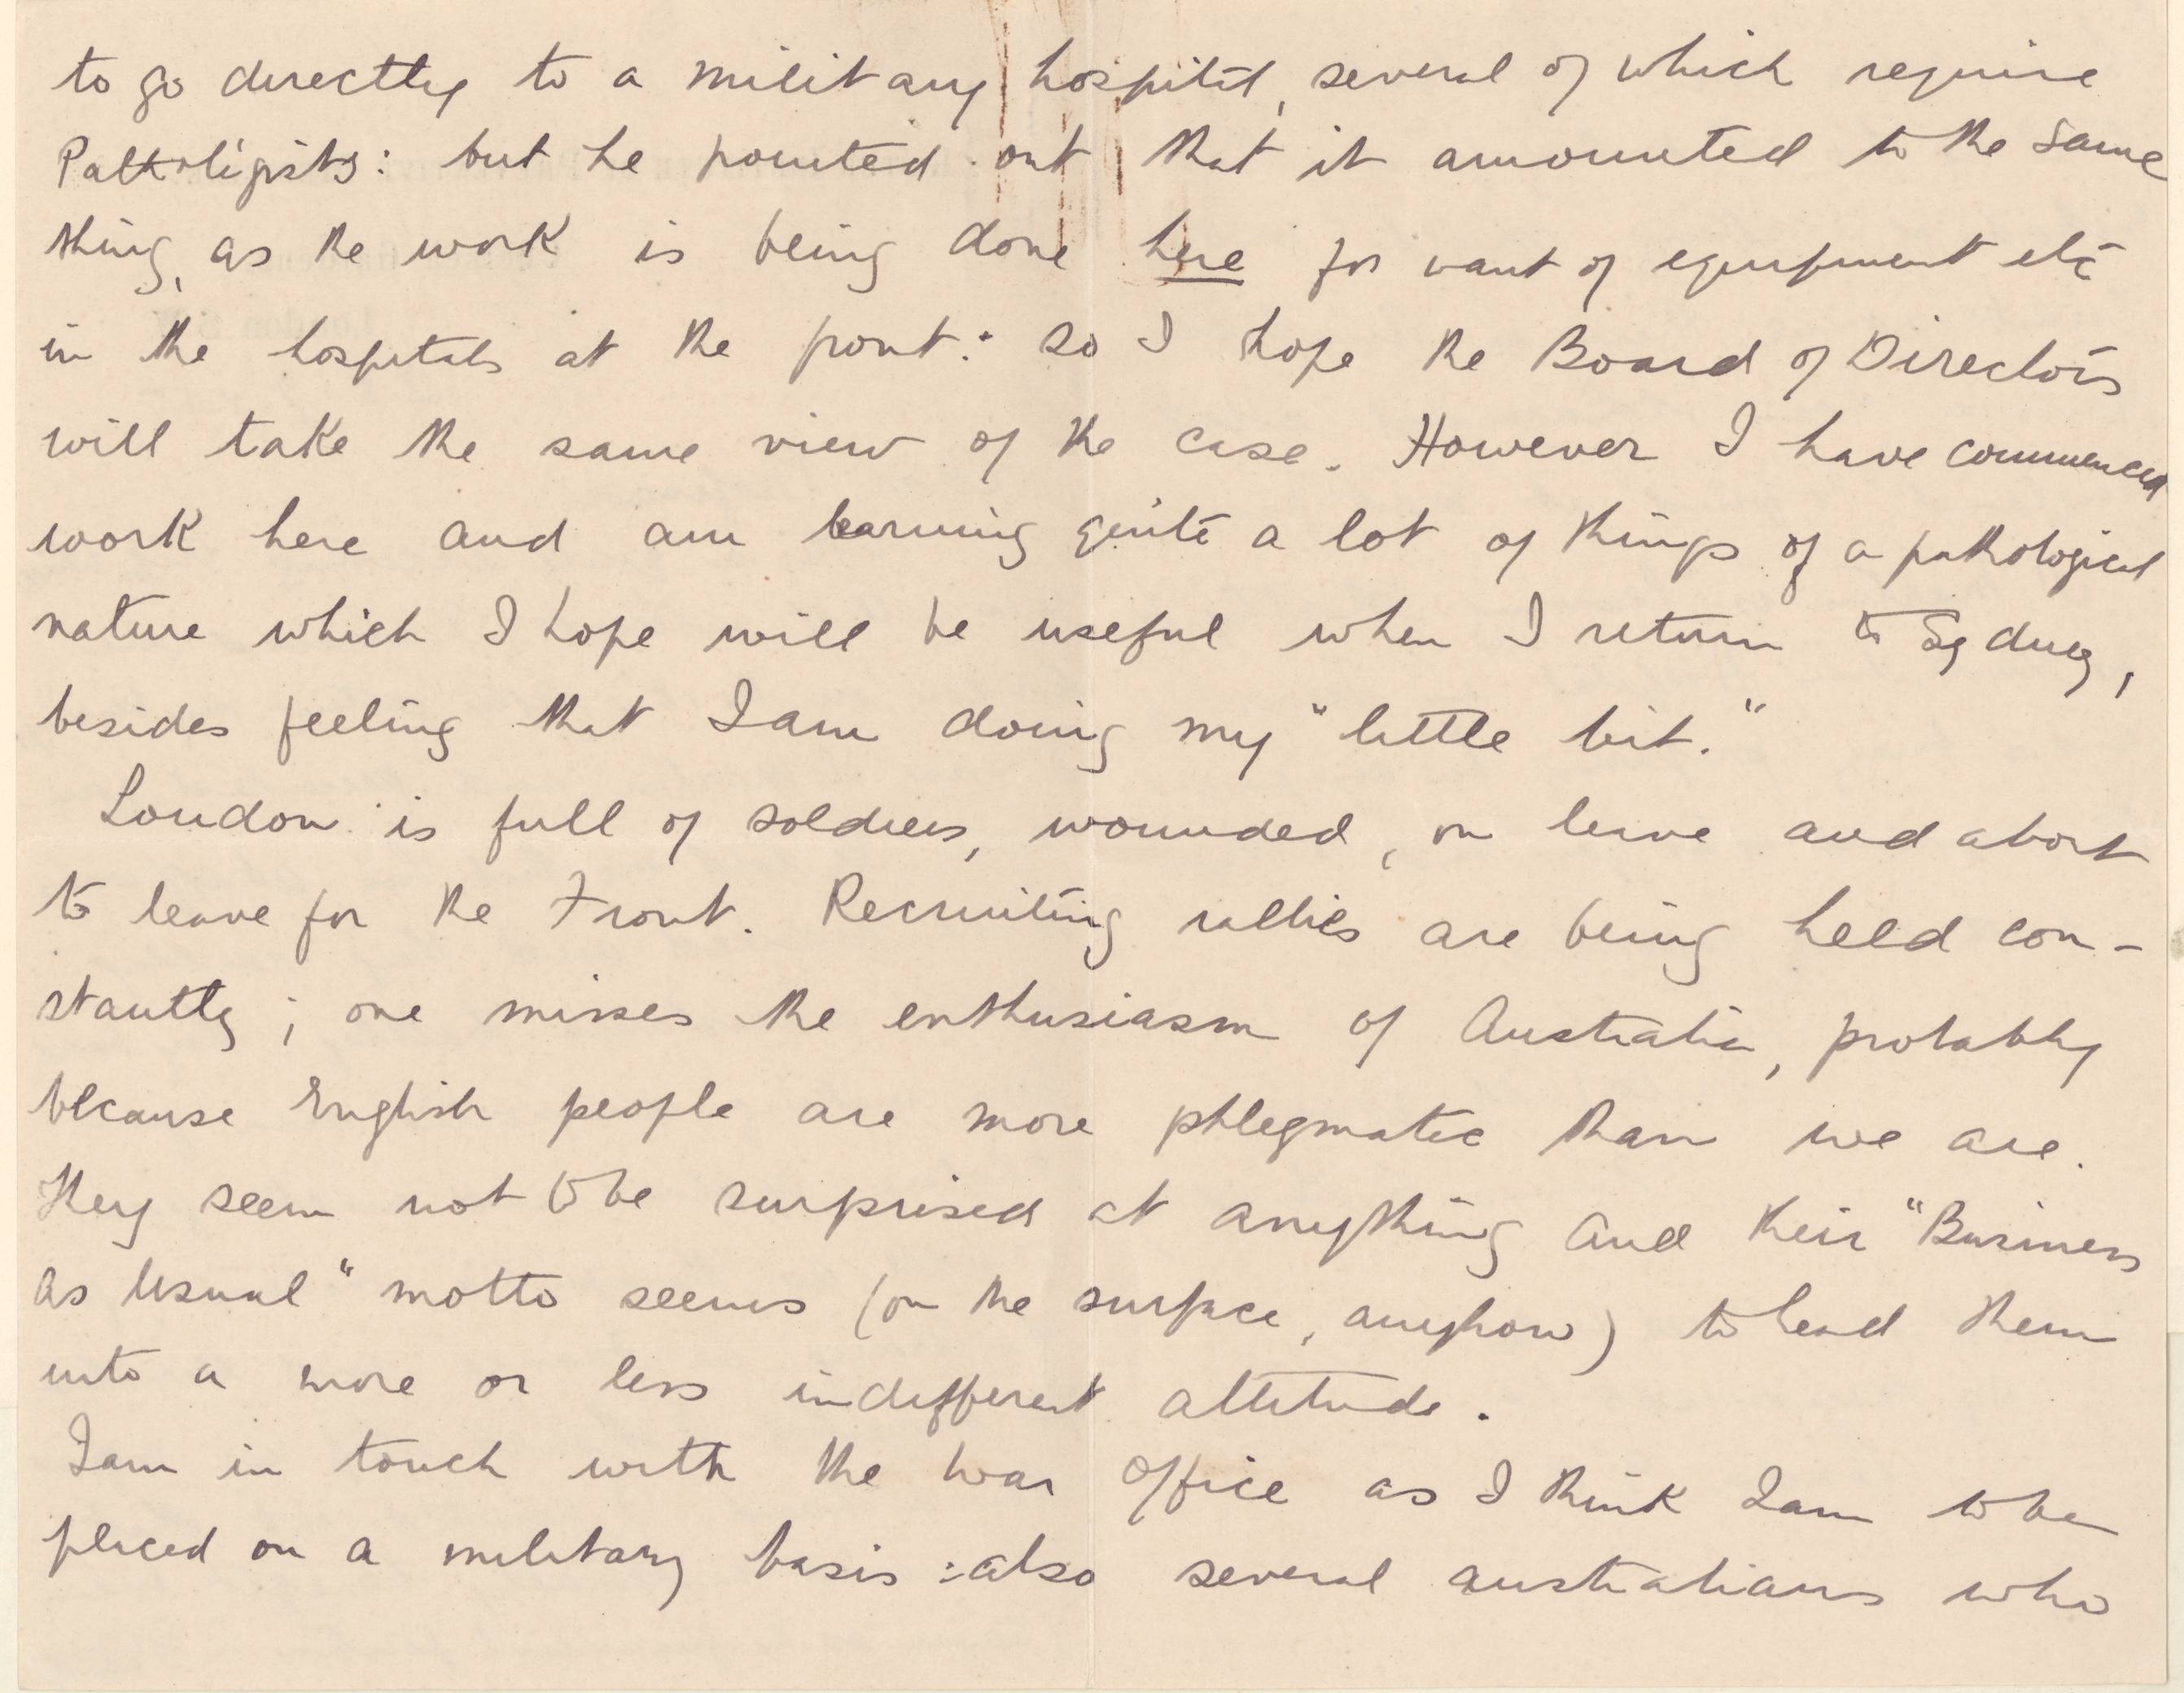 to go directly to a military hospital, several of which require
Pathologists: but he pointed out that it amounted to the same
thing, as the work is being done here for want of equipment etc
in the hospitals at the front: so I hope the Board of Directors
will take the same view of the case. However I have commenced
work here and am learning quite a lot of things of a pathological
nature which I hope will be useful when I return to Sydney,
besides feeling that I am doing my "little bit."
London is full of soldiers, wounded, on leave and about
to leave for the Front. Recruiting rallies are being held con-
stantly; one misses the enthusiasm of Australia, probably
because English people are more phlegmatic than we are.
They seem not to be surprised at anything and their "Business
as Usual" motto seems (on the surface, anyhow) to lead them
into a more or less indifferent attitude.
I am in touch with the War Office as I think I am to be
placed on a military basis: also several australians who